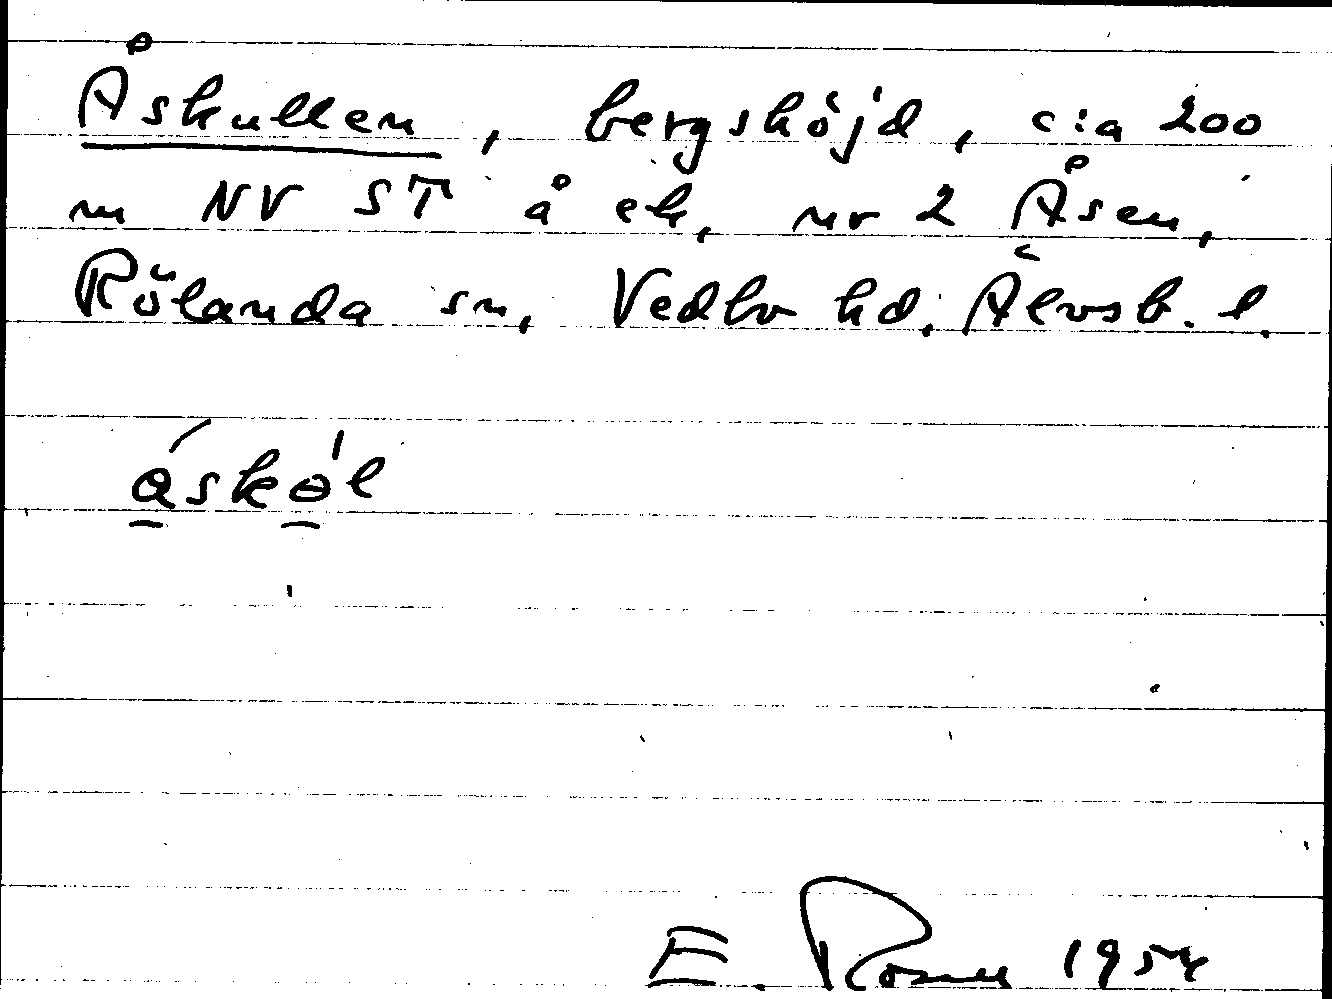 Åskullen, bergshöjd, c:a 200
m NV ST å ek, nr 2 Åsen,
Rölanda sn, Vedbo hd. Älvsb. l.
åskөl
E. 1954